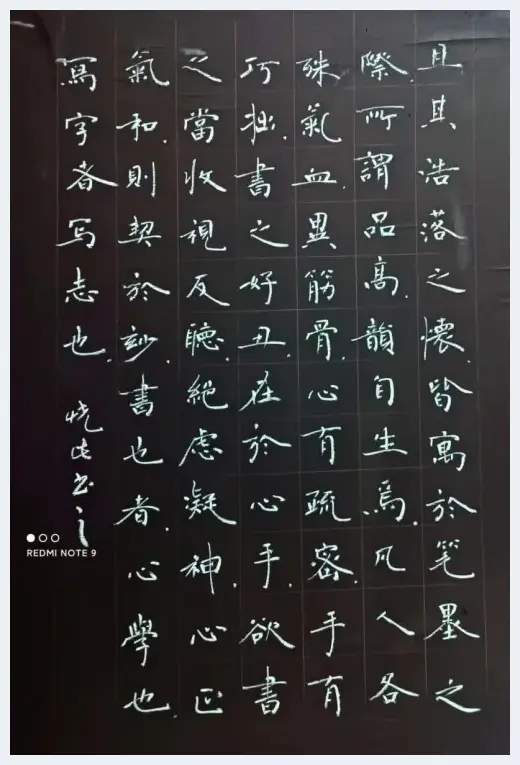 且其浩落之懷.皆寓於笔墨之
際.所謂品高.韻自生焉.凡人各
殊氣血.異筋骨.心有疏密.手有
巧拙.書之好丑.在於心手.欲書
之當收視反聽.絕虑凝神.心正
氣和.則契於玅.書也者.心學也.
寫字者写志也.
书之
REDMI NOTE 9